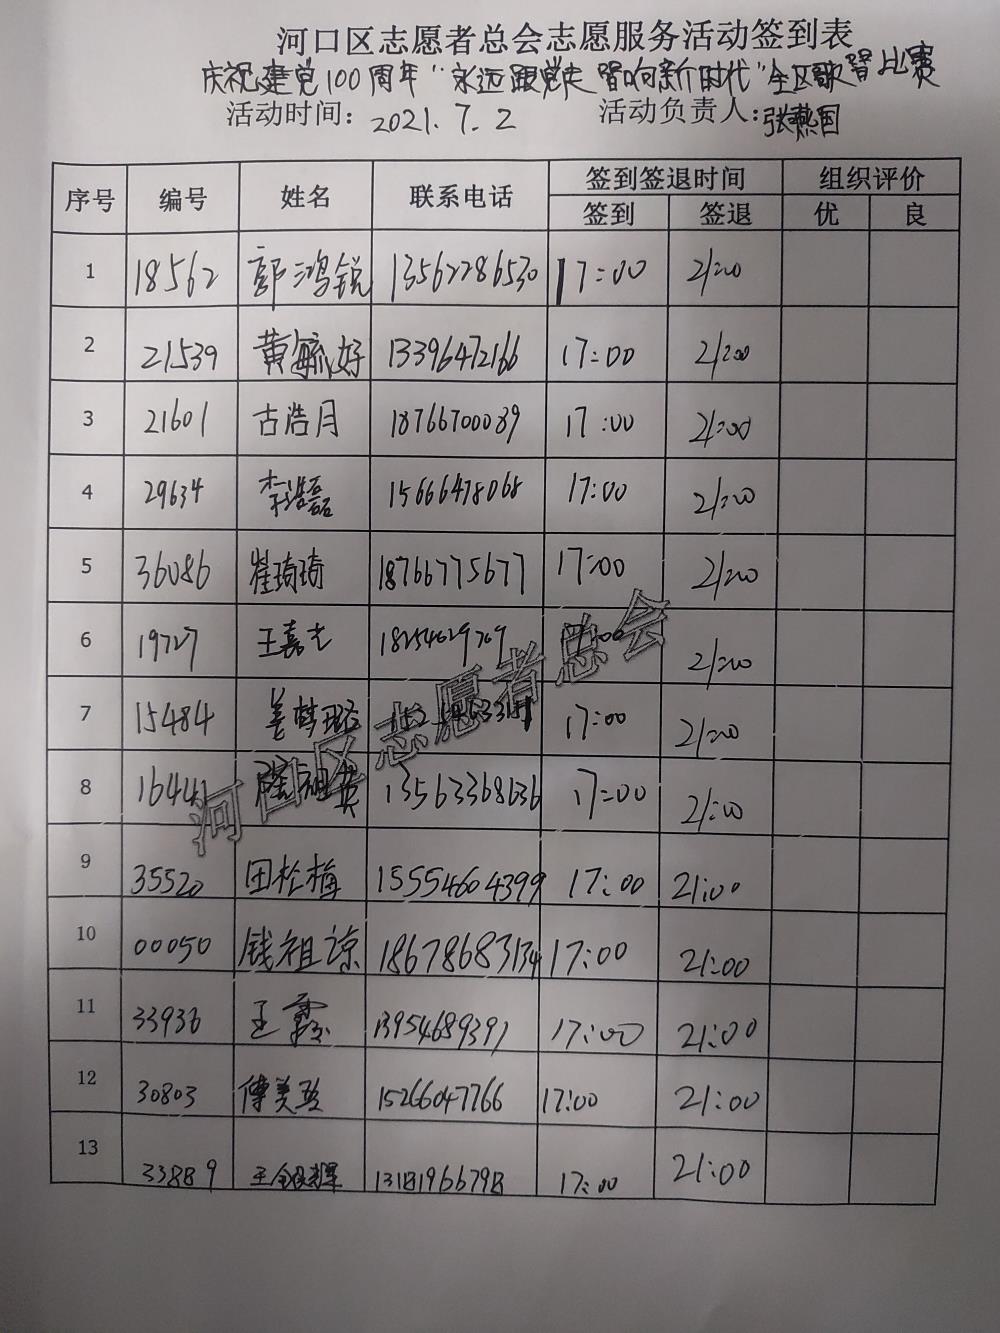 河口区志愿者总会志愿服务活动签到表
庆祝建党100周年“永远跟党走 唱响新时代”全区歌唱比赛
活动时间：2021.7.2 活动负责人：张燕国
序号 编号 姓名 联系电话 签到签退时间 组织评价
签到 签退 优 良
1 18562 郭鸿锐 13562286530 17:00 21:00
2 21539 黄毓好 13396472166 17:00 21:00
3 21601 古浩月 18766700089 17:00 21:00
4 29634 李浩磊 15666478068 17:00 21:00
5 36086 崔琦琦 18766775677 17:00 21:00
6 19727 王嘉志 18254629769 17:00 21:00
7 15484 姜梦璐 17:00 21:00
8 16441 陶祖英 13563368636 17:00 21:00
9 35520 田栓梅 15554604399 17:00 21:00
10 00050 钱祖谅 18678683134 17:00 21:00
11 33936 王霞 13954689391 17:00 21:00
12 30803 傅美玲 15266047766 17:00 21:00
13 33889 王银辉 13181966798 17:00 21:00
河口区志愿者总会